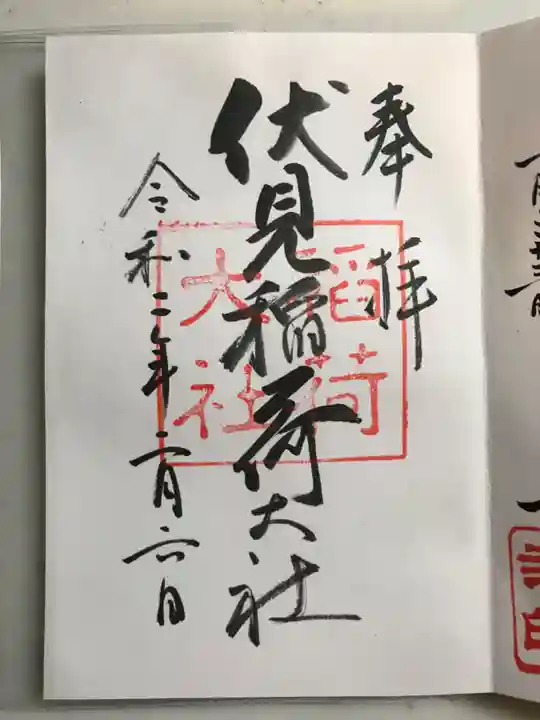 奉拝
伏見稲荷大社
稲荷
大社
令和二年二月六日